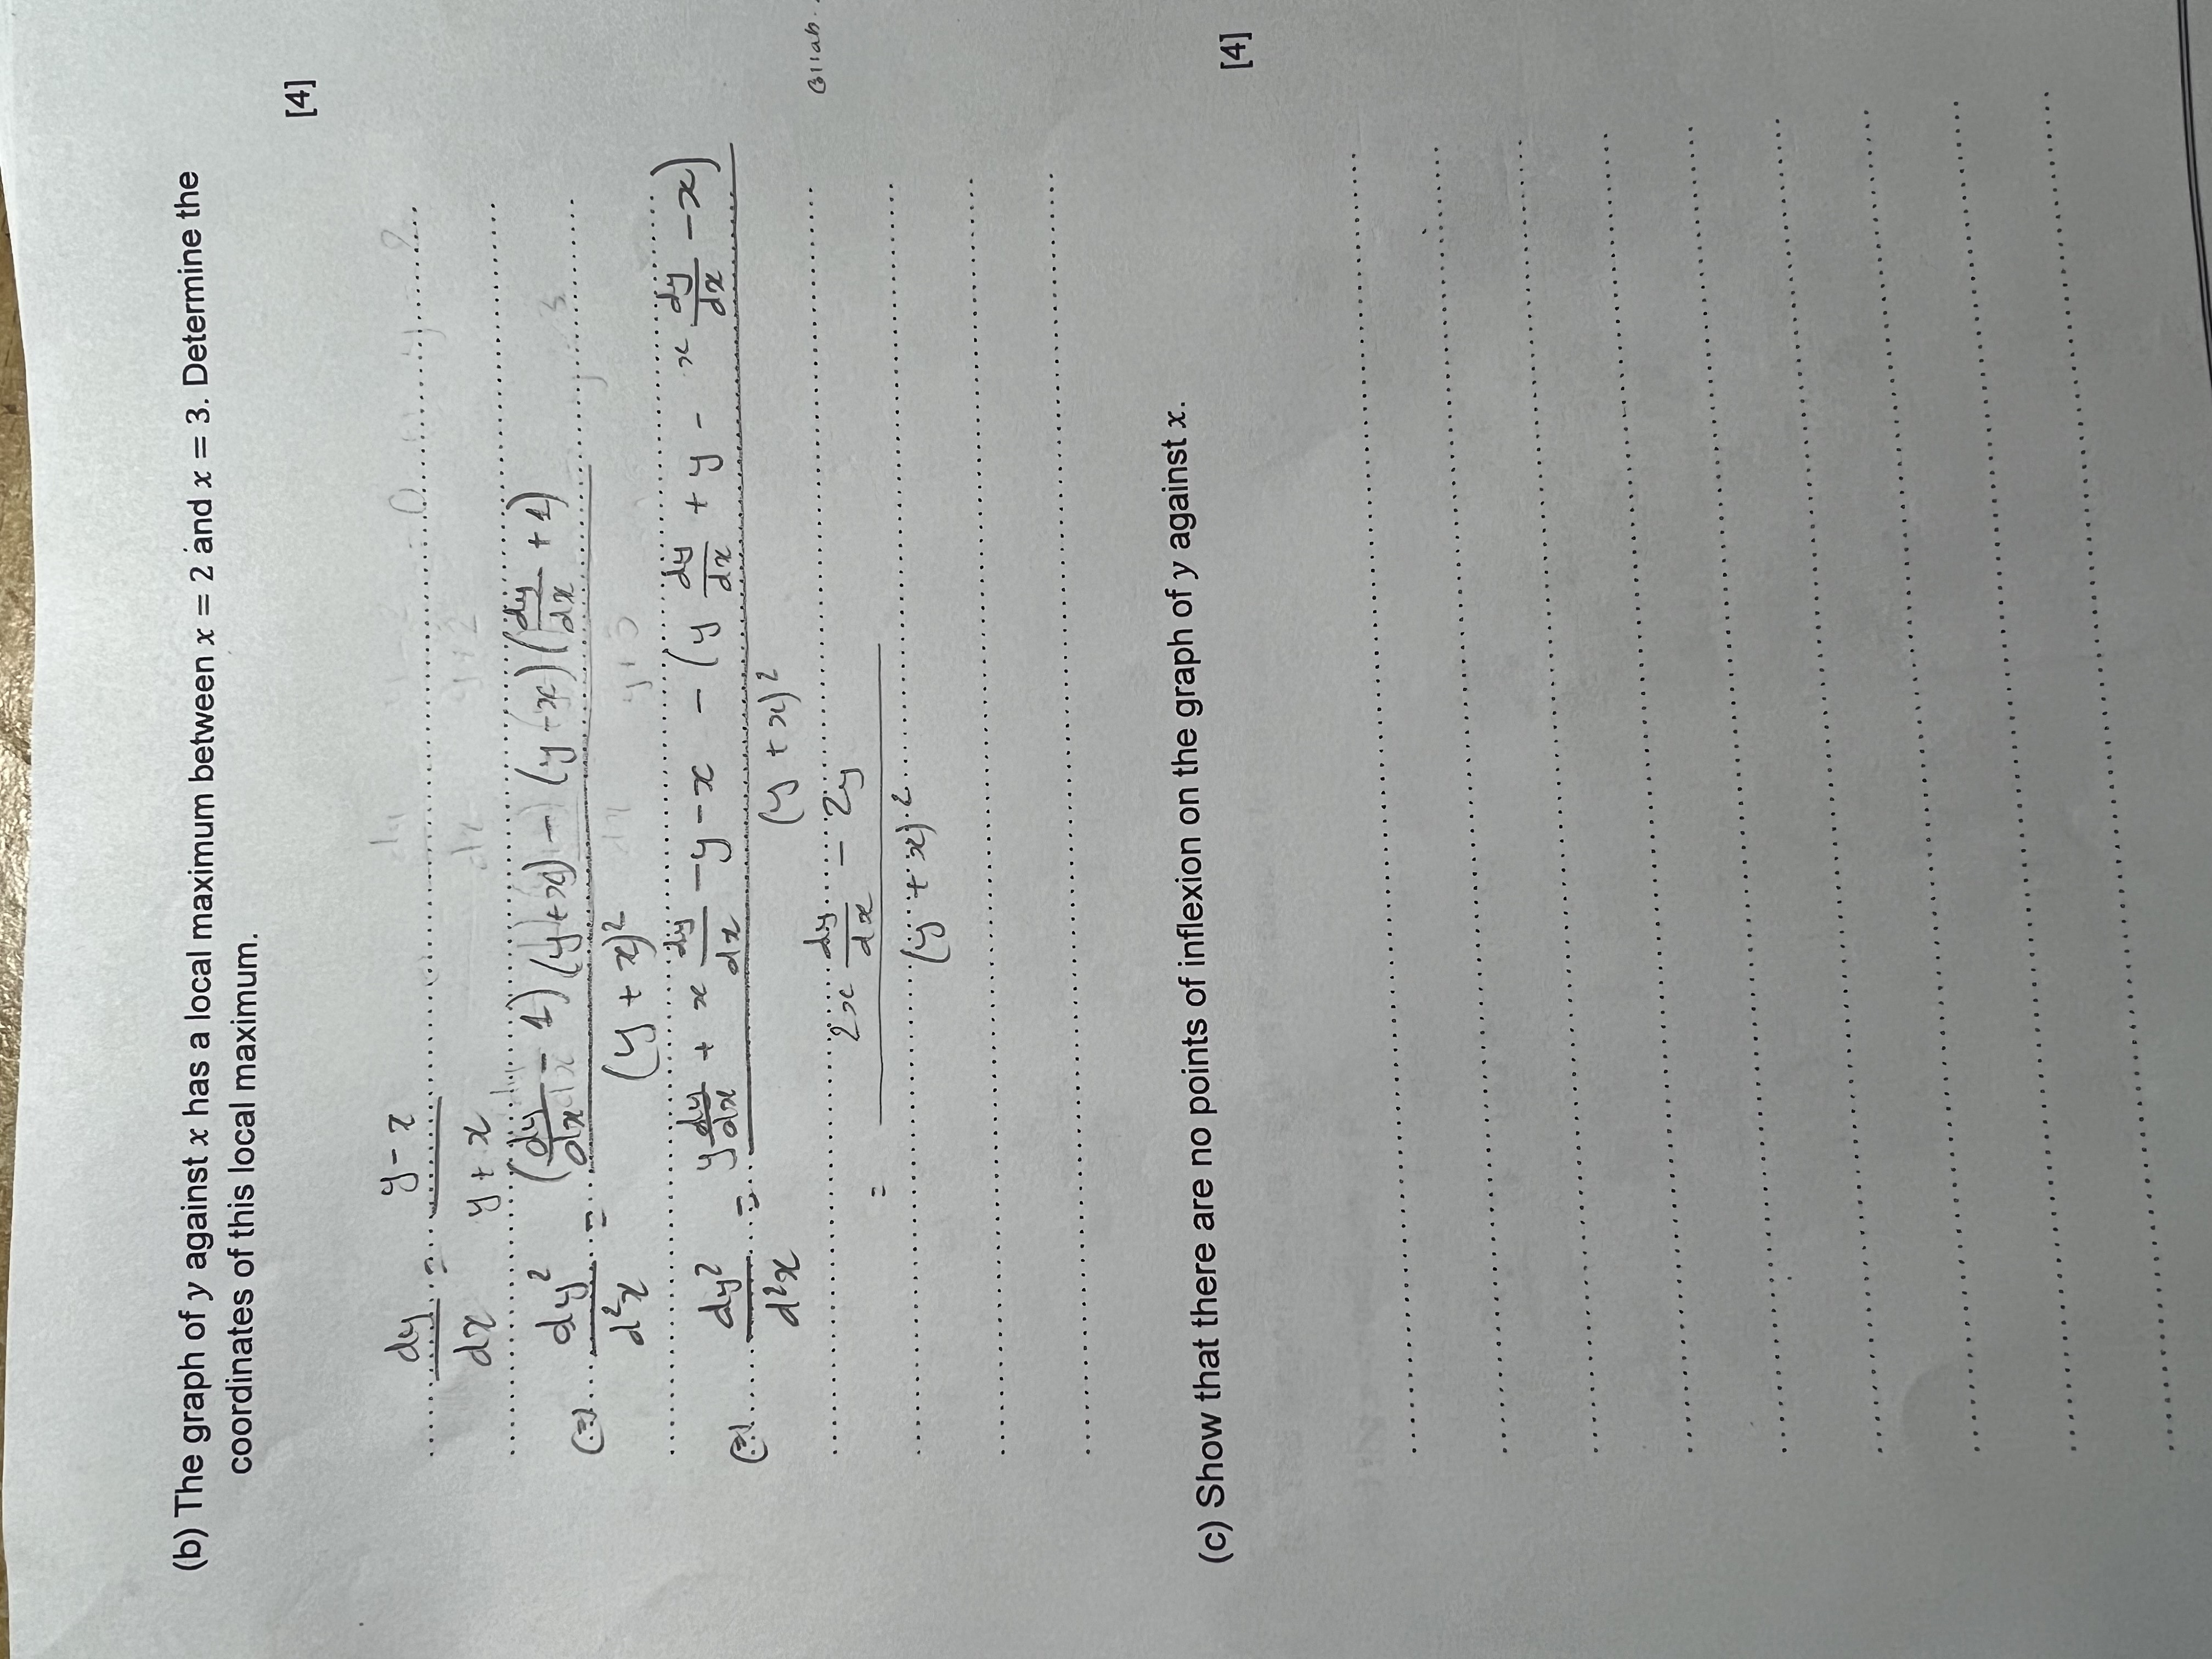 (b) The graph of y against x has a local maximum between x = 2 and x = 3. Determine the
coordinates of this local maximum.
[4]
dy/dx = (y - x)/(y + x)
(=) dy²/d²x = ((dy/dx - 1)(y + x) - (y - x)(dy/dx + 1))/(y + x)²
(=) dy²/d²x = (y dy/dx + x dy/dx - y - x - (y dy/dx + y - x dy/dx - x))/(y + x)²
= (2x dy/dx - 2y)/(y + x)²
(c) Show that there are no points of inflexion on the graph of y against x.
[4]